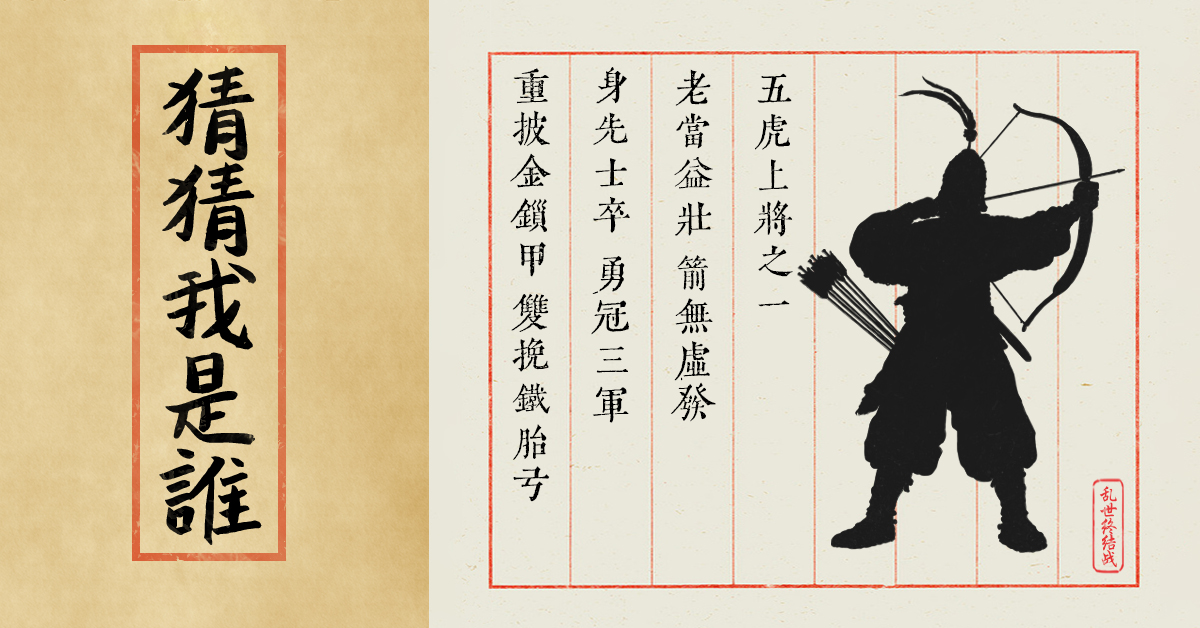 猜猜我是誰
五虎上將之一
老當益壯 箭無虛發
身先士卒 勇冠三軍
重披金鎖甲 雙挽鐵胎弓
乱世终结战